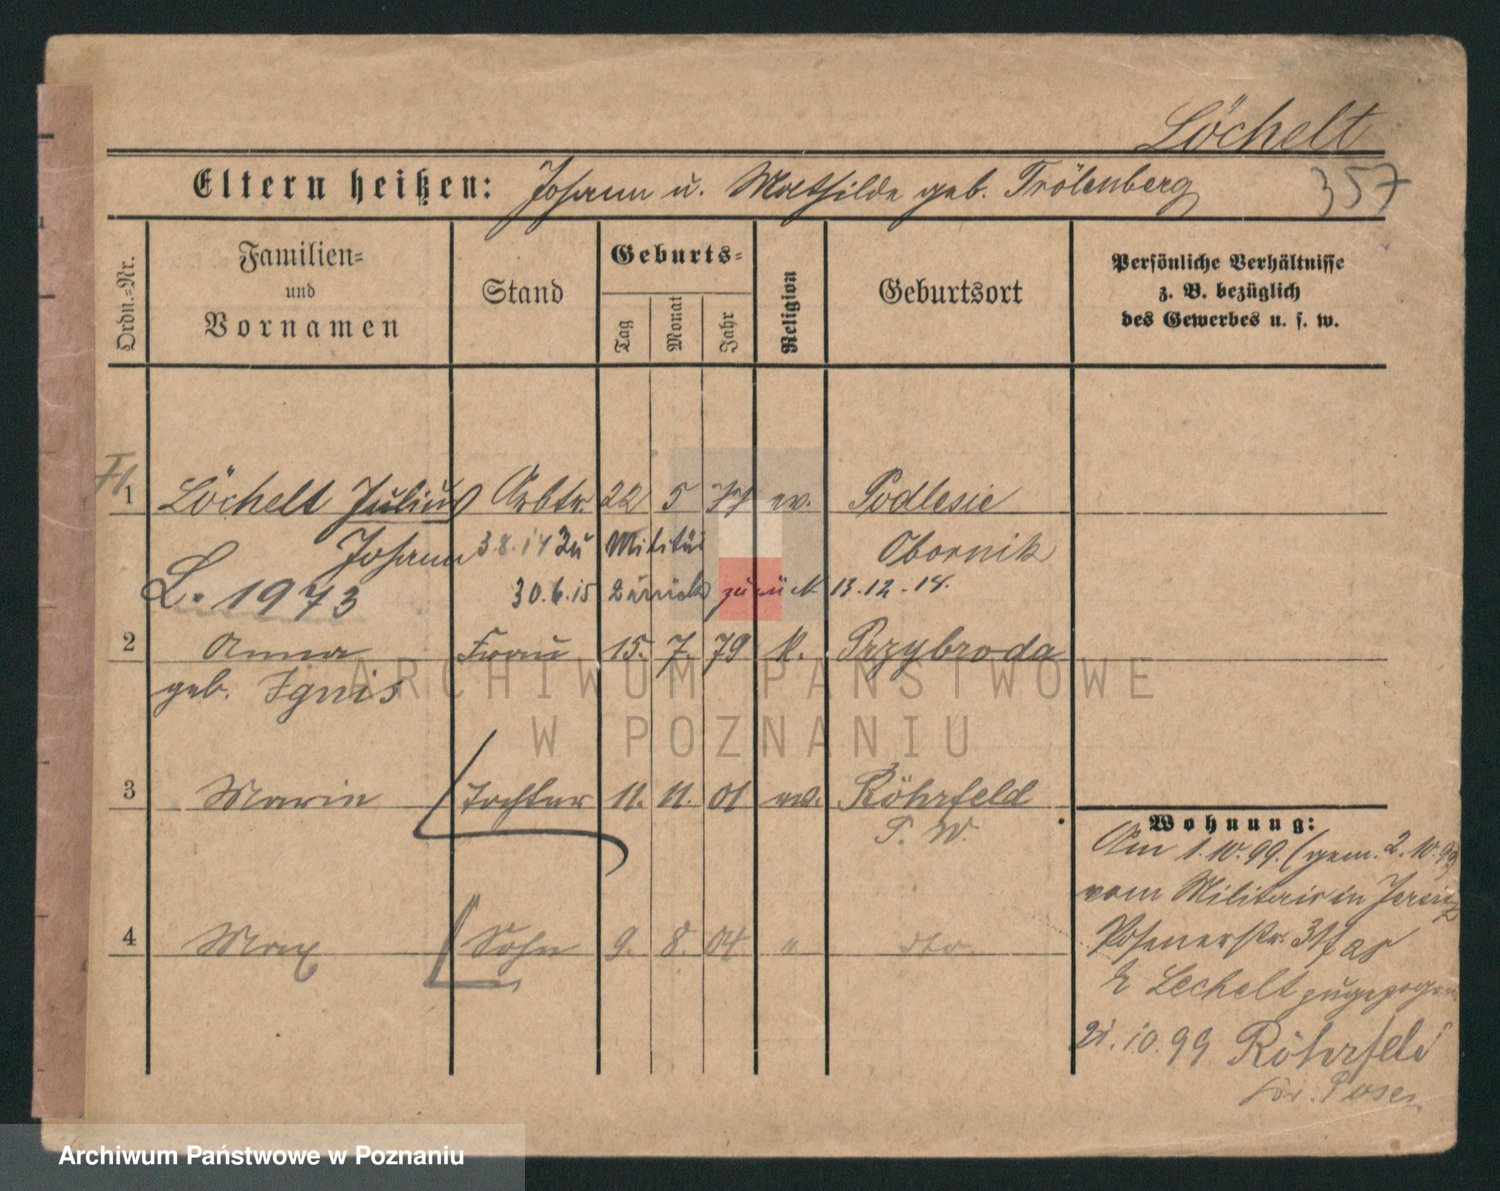 Löchelt
Eltern heißen: Johann u. Mathilde geb. Trölenberg
357
Ordn.-Nr.
Familien-
und
Vornamen
Stand
Geburts-
Tag
Monat
Jahr
Religion
Geburtsort
Persönliche Verhältnisse
z. B. bezüglich
des Gewerbes u. s. w.
1 Löchelt Julius Arbtr. 22 5 77 ev. Podlesie
Johann 3.8.14 zu Militär Obornik
L. 1973 30.6.15 zurück zurück 13.12.14.
2 Anna Frau 15. 7. 79 k. Przybroda
geb. Ignis
ARCHIWUM PAŃSTWOWE
W POZNANIU
3 Marie Tochter 11. 11. 01 ev. Röhrfeld
P. W.
4 Max Sohn 9. 8. 04 " dto.
Wohnung:
Am 1.10.99. (gem. 2.10.99)
vom Militair in
Posenerstr. 31
Lechelt zugezogen
21.10.99 Röhrfeld
Posen
Archiwum Państwowe w Poznaniu